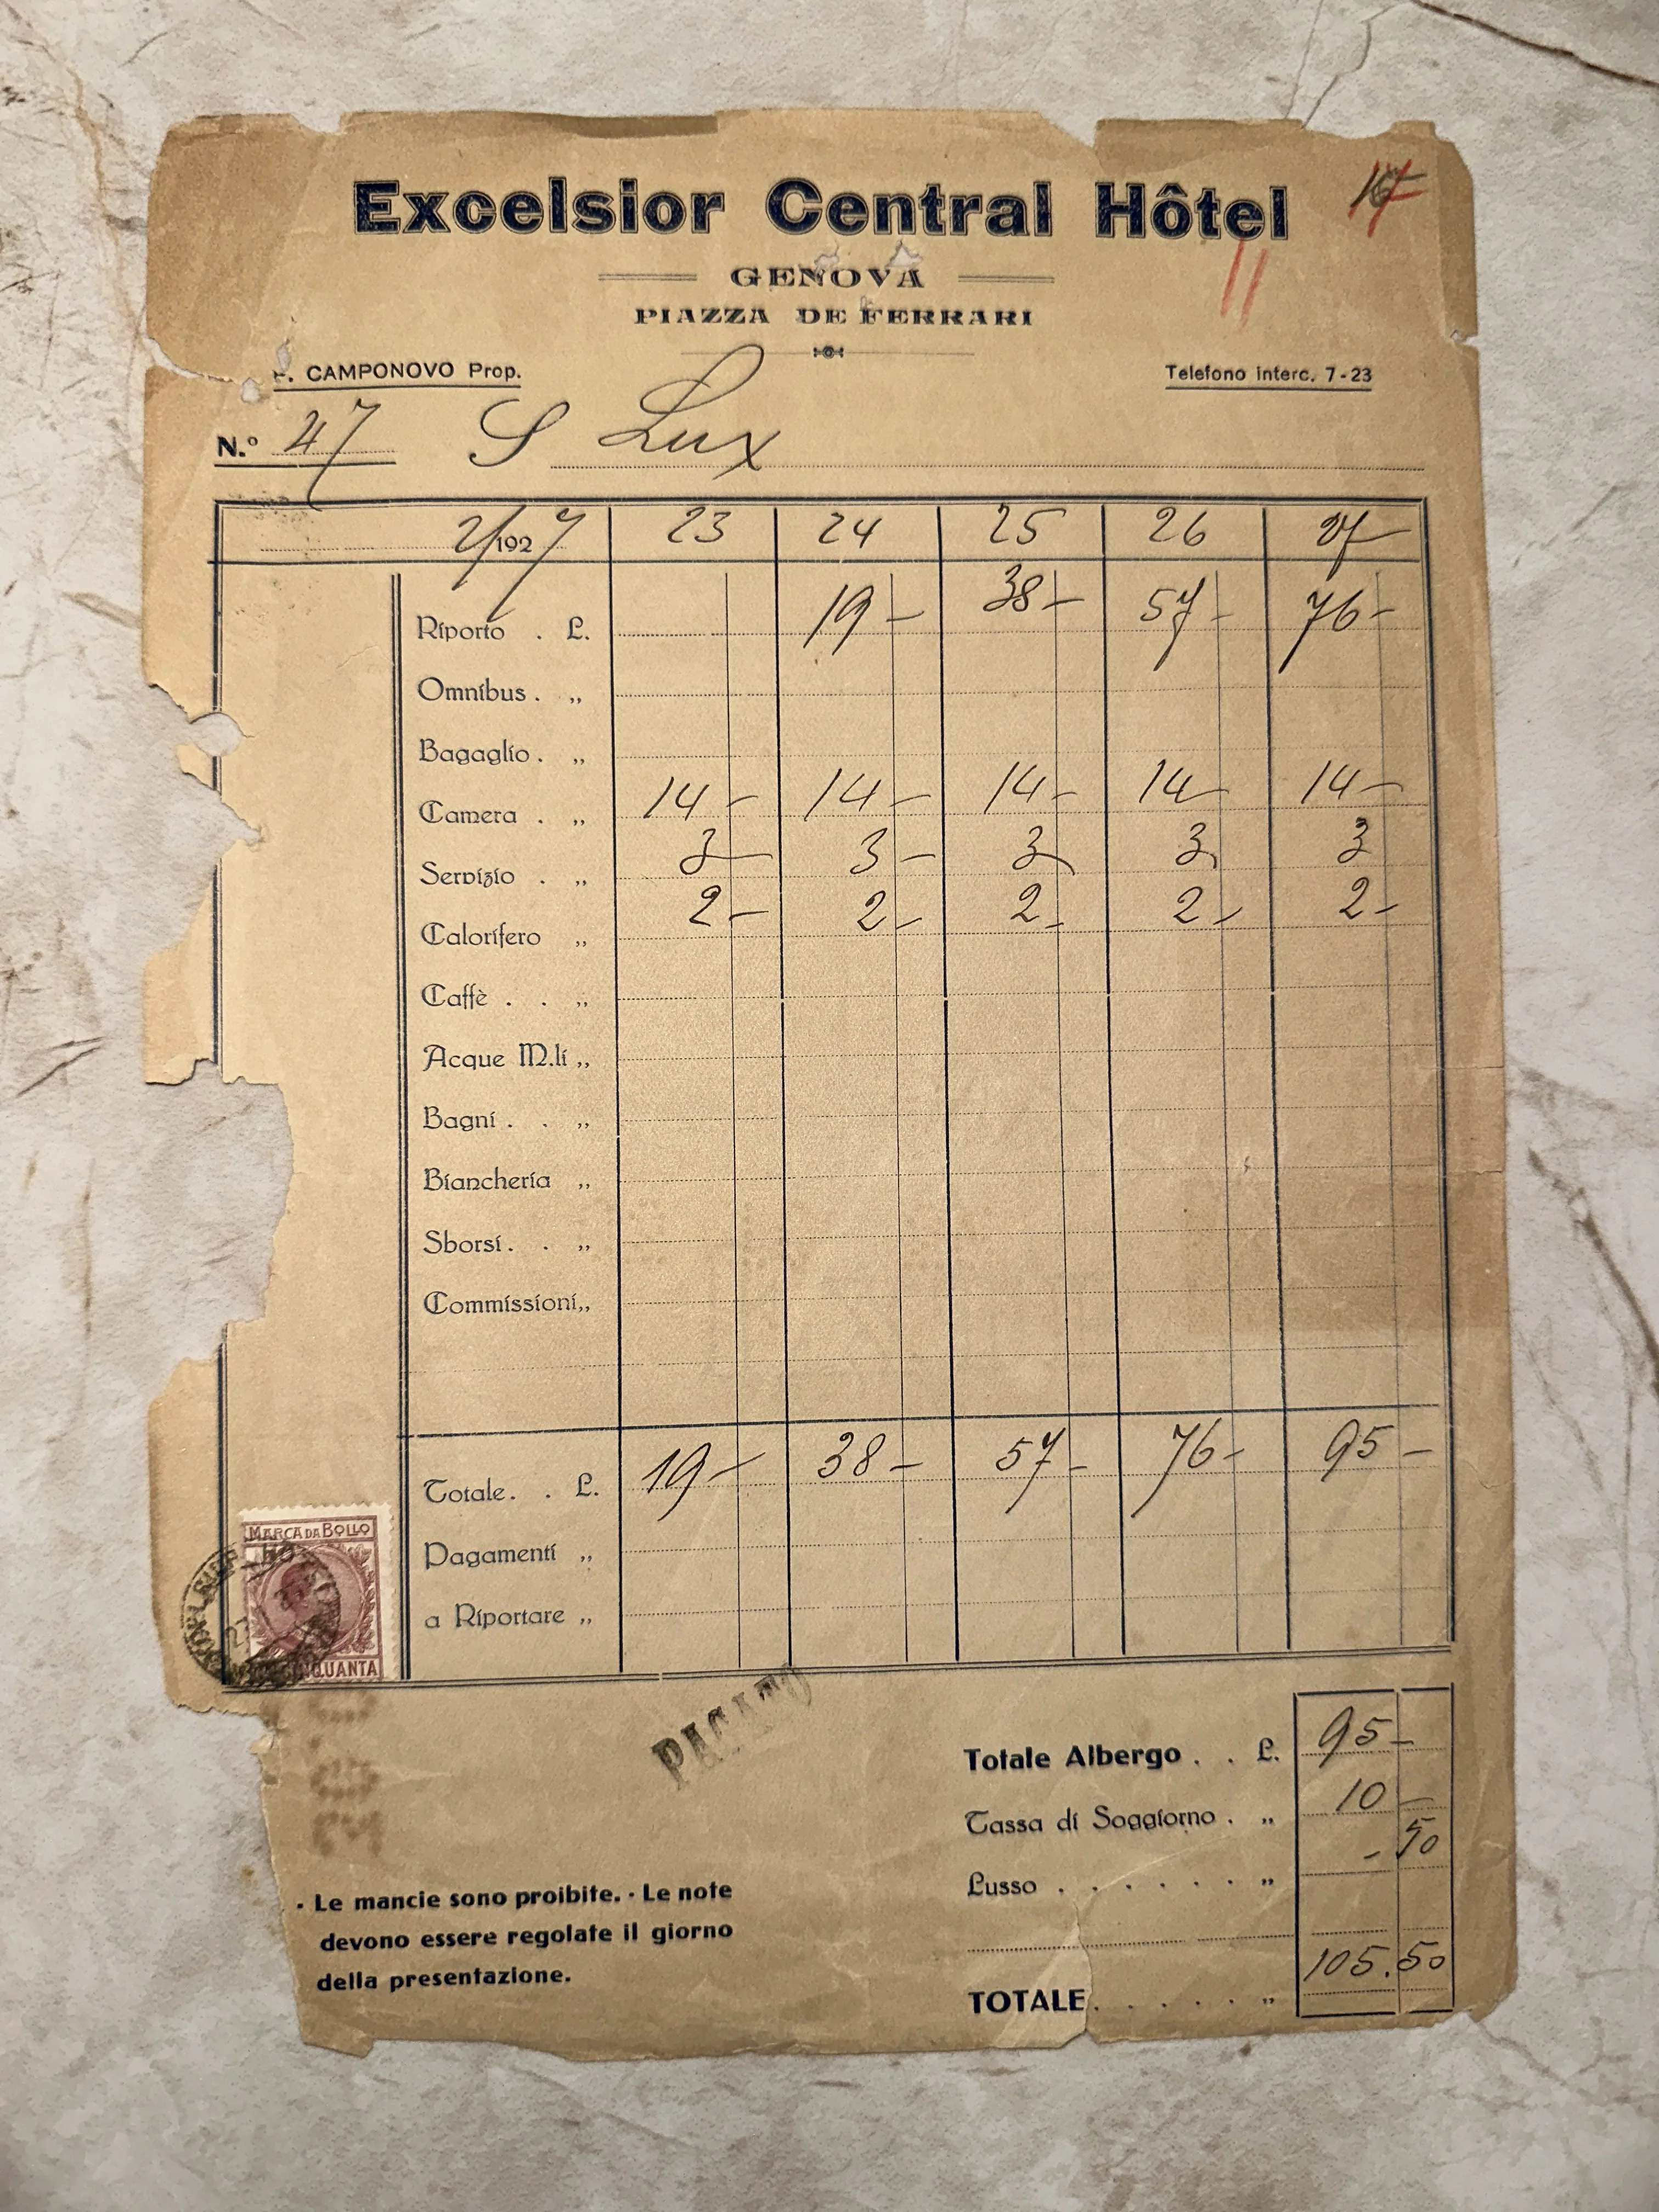 Excelsior Central Hôtel
GENOVA
PIAZZA DE FERRARI
. CAMPONOVO Prop. Telefono interc. 7-23
N.º 47 S Lux
2/1927 23 24 25 26 27
Riporto . L. 19 – 38 – 57 – 76 –
Omnibus . „
Bagaglio . „
Camera . „ 14 – 14 – 14 – 14 – 14 –
Servizio . „ 3 – 3 – 3 – 3 – 3
Calorifero „ 2 – 2 – 2 – 2 – 2 –
Caffè . . „
Acque M.li „
Bagni . . „
Biancheria „
Sborsi . . „
Commissioni „
Totale . . L. 19 – 38 – 57 – 76 – 95 –
Pagamenti „
a Riportare „
MARCA DA BOLLO
PAGATO
Totale Albergo . . L. 95 –
Tassa di Soggiorno . „ 10 –
Lusso . . . . . . . „ – 50
TOTALE . . . . . . „ 105.50
- Le mancie sono proibite. - Le note
devono essere regolate il giorno
della presentazione.